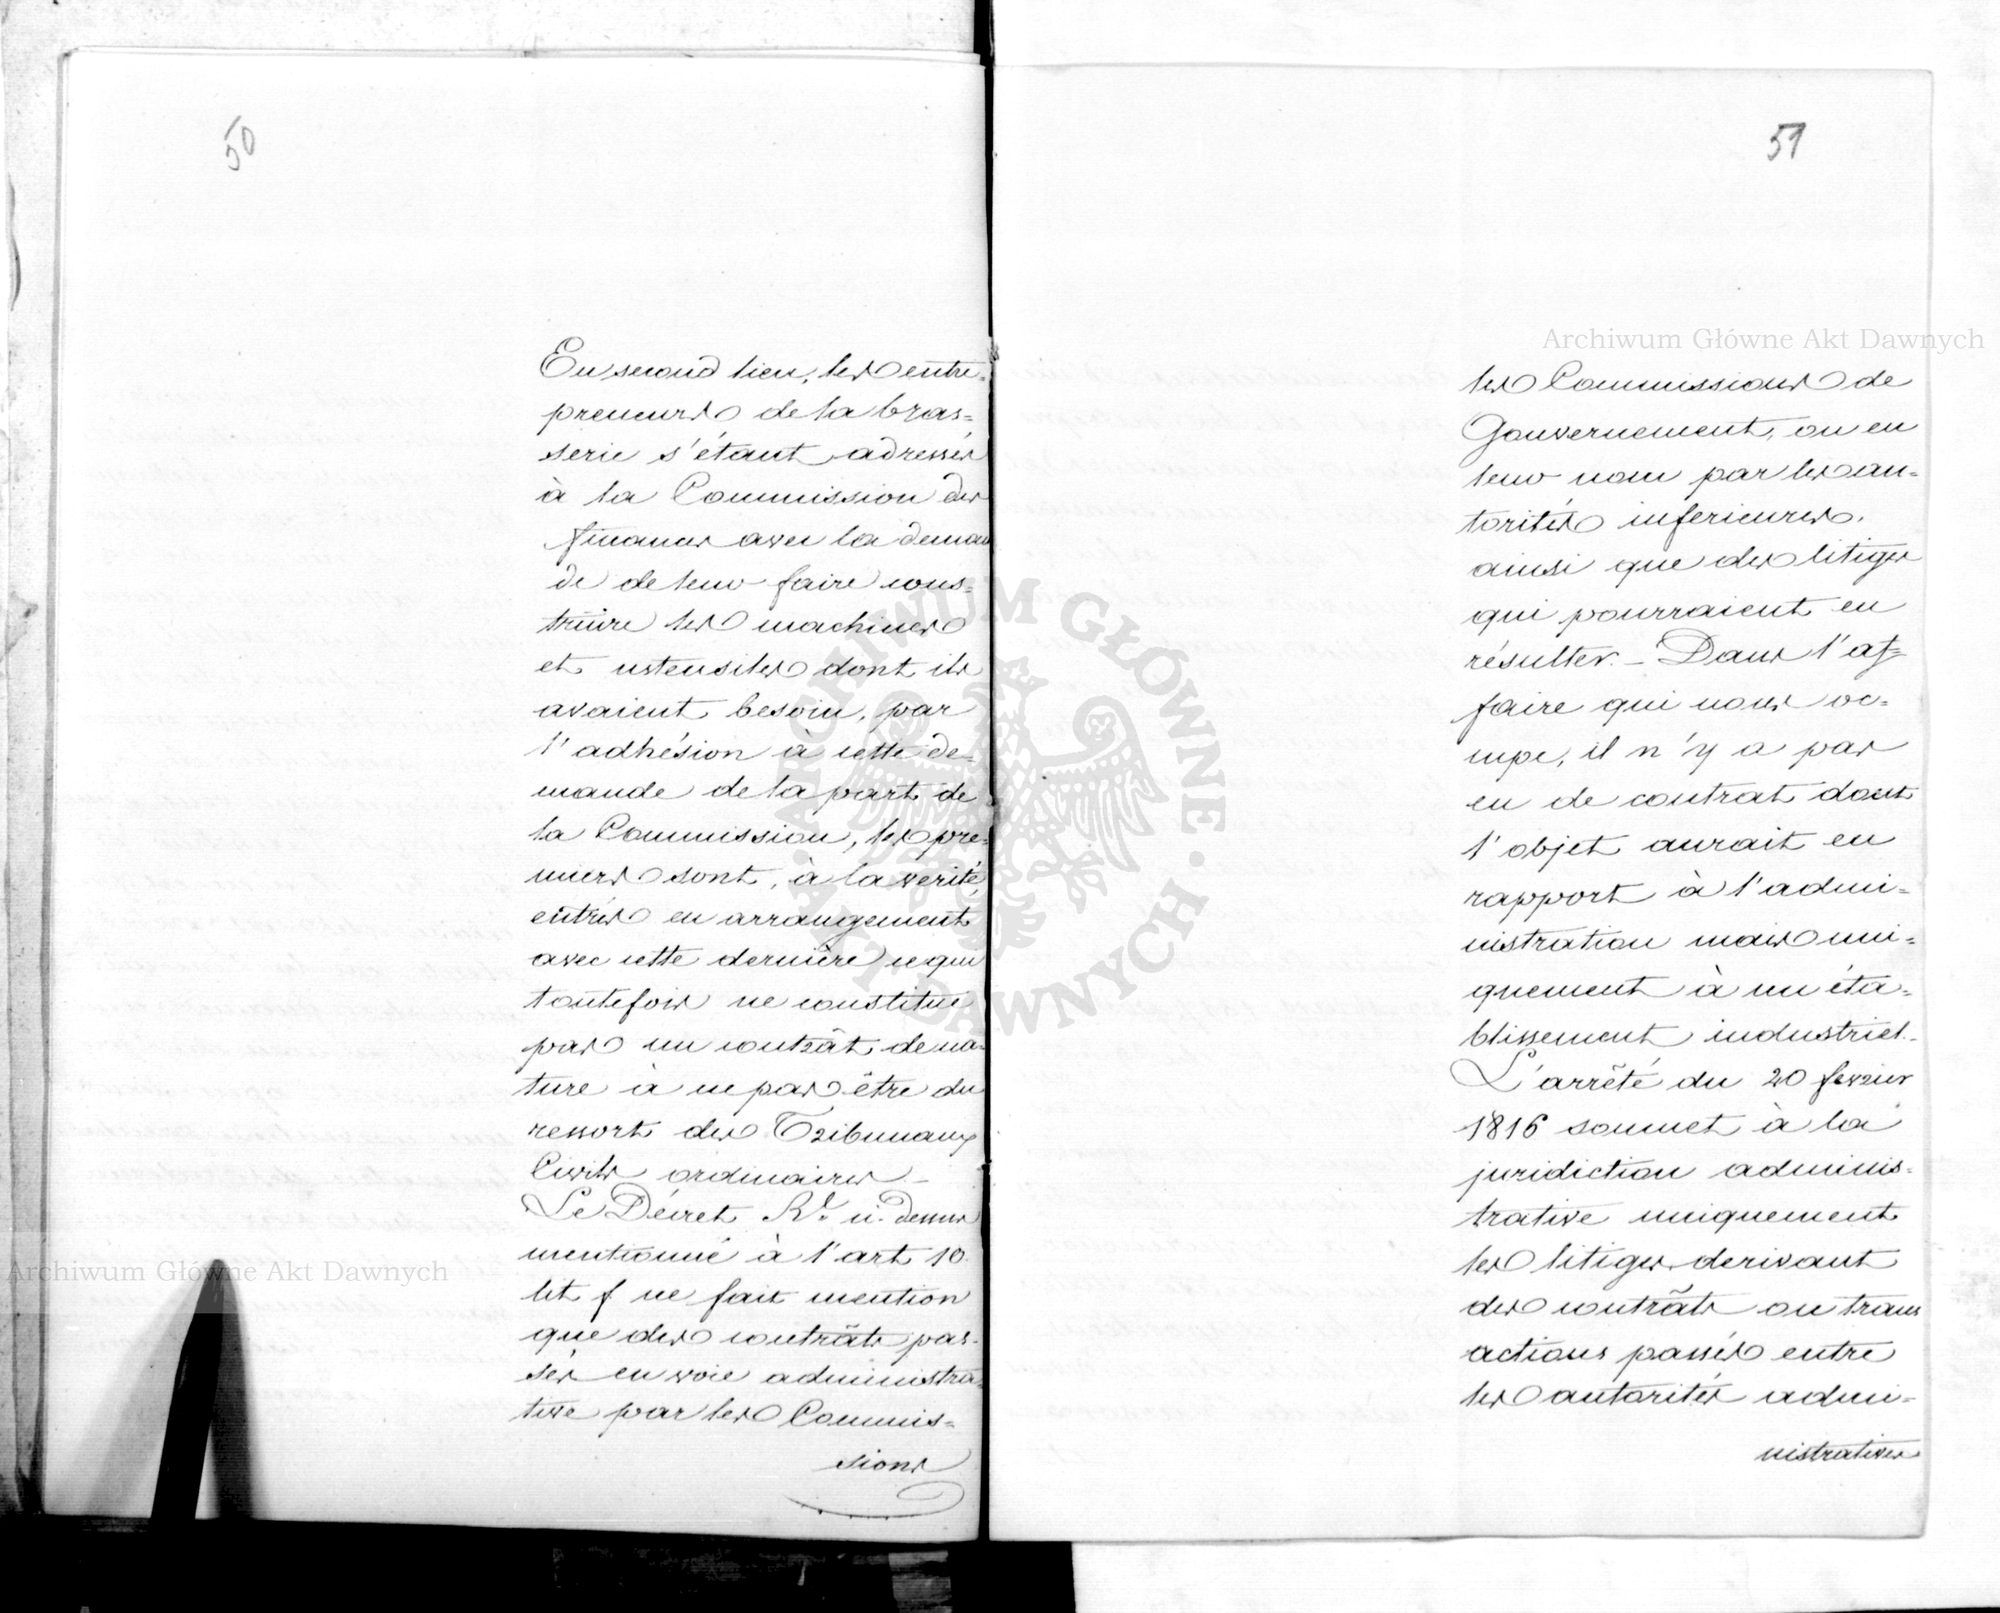 50
En second lieu, les entre-
preneurs de la bras=
serie s'étant adressés
à la Commission des
finances avec la deman
de de leur faire cons=
truire les machines
et ustensiles dont ils
avaient besoin, par
l'adhésion à cette de-
mande de la part de
la Commission, les pre=
miers sont, à la verité,
entrés en arrangement
avec cette dernière ce qui
toutefois ne constitue
pas un contrât de na-
ture à ne pas être du
ressort des Tribunaux
Civils ordinaires –
Le Décret Rl. ci-dessus
mentionné à l'art 10.
lit f ne fait mention
que des contrâts pas-
sés en voie administra-
tive par les Commis=
sions
51
les Commissions de
Gouvernement, ou en
leur nom par les au-
torités inferieures,
ainsi que des litiges
qui pourraient en
résulter. – Dans l'af-
faire qui nous oc=
cupe, il n'y a pas
eu de contrat dont
l'objet aurait eu
rapport à l'admi=
nistration mais uni=
quement à un éta=
blissement industriel. –
L'arrêté du 20 fevrier
1816 soumet à la
juridiction adminis=
trative uniquement
les litiges derivant
des contrâts ou trans
actions passés entre
les autorités admi=
nistratives
Archiwum Główne Akt Dawnych
Archiwum Główne Akt Dawnych
ARCHIWUM GŁÓWNE AKT DAWNYCH